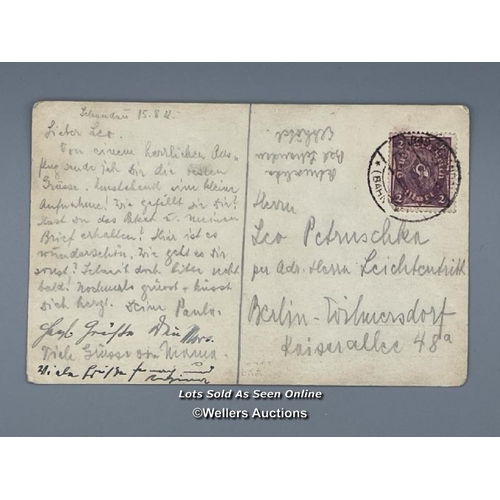 Schandau 15.8.22.
Lieber Leo.
Von einem herrlichen Aus-
flug sende ich Dir die besten
Grüsse. Umstehend eine kleine
Aufnahme! Wie gefällt sie Dir?
Hast Du das Paket u. meinen
Brief erhalten? Hier ist es
wunderschön. Wie geht es Dir
sonst? Schreib doch bitte recht
bald! Nochmals grüsst + küsst
Dich herzl. Deine Paula.
Herzl. Grüße
Viele Grüsse von Mama.
Viele Grüße
Bad Schandau
Herrn
Leo Petruschka
per Adr. Herrn Leichtentritt
Berlin-Wilmersdorf
Kaiserallee 48a
2 2
(BAHN
Lots Sold As Seen Online
©Wellers Auctions